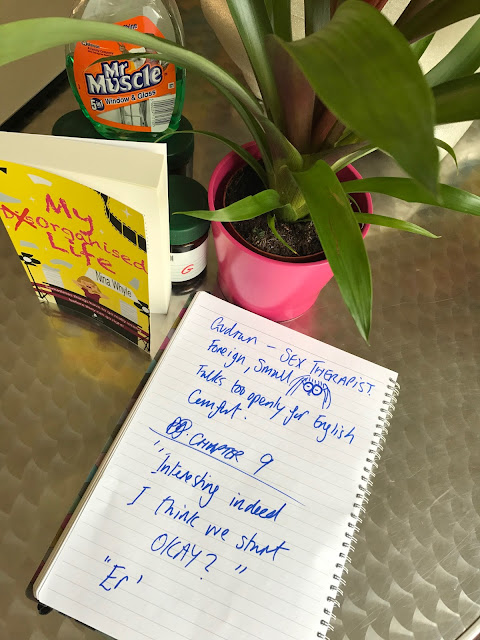 Mr
Muscle
5in1 Window & Glass
My
Disorganised
Life
Nina Whyle
G
Gudrun – SEX THERAPIST.
Foreign, Small
Talks too openly for English
Comfort.
CHAPTER 9
"Interesting indeed
I think we start
OKAY? "
"Er'